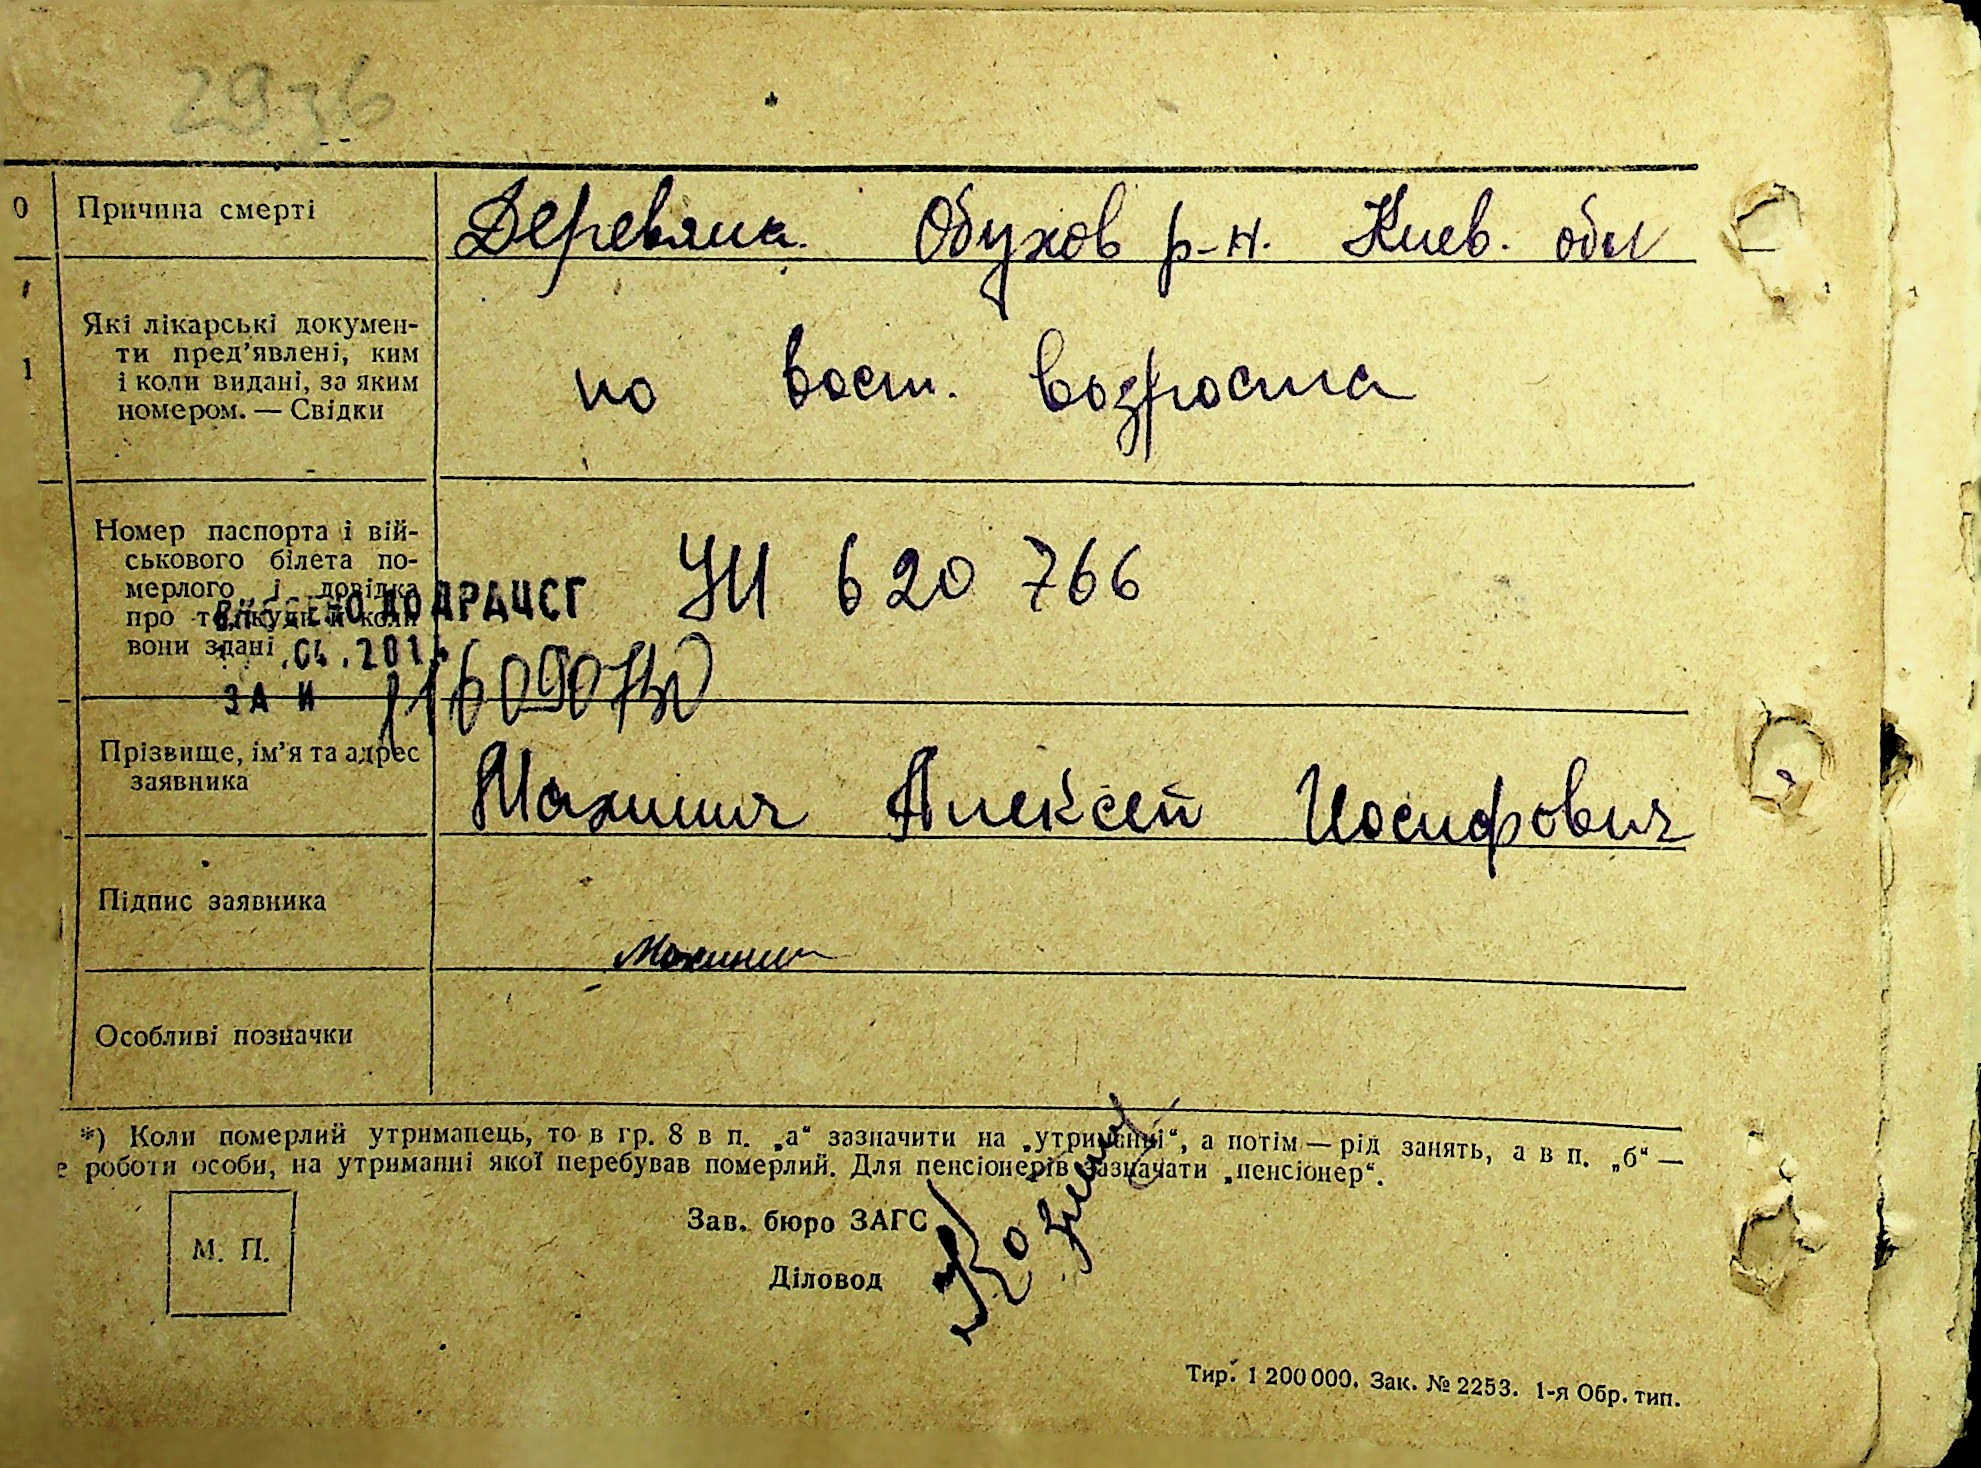 2936
0 Причина смерті Деревяна. Обухов р-н. Киев. обл
1 Які лікарські докумен-
ти пред’явлені, ким
і коли видані, за яким
номером. — Свідки
по вост. возраста
Номер паспорта і вій-
ськового білета по-
мерлого і довідка
про те, куди й коли
вони здані
УИ 620 766
ВНЕСЕНО ДО ДРАЦСГ
.04.201
ЗА №
Прізвище, ім’я та адрес
заявника
Махинич Алексей Иосифович
Підпис заявника
Махинич
Особливі позначки
*) Коли померлий утриманець, то в гр. 8 в п. „а“ зазначити на „утриманні“, а потім — рід занять, а в п. „б“ —
е роботи особи, на утриманні якої перебував померлий. Для пенсіонерів зазначати „пенсіонер“.
М. П.
Зав. бюро ЗАГС
Діловод
Тир. 1 200 000. Зак. № 2253. 1-я Обр. тип.